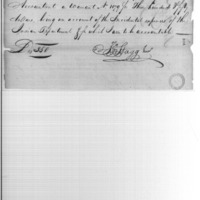 Accountant a Warrant No 109 for Three hundred & fifty
dollars being on account of the Incidental expenses of the
Indian Department for which I am to be accountable
D 350